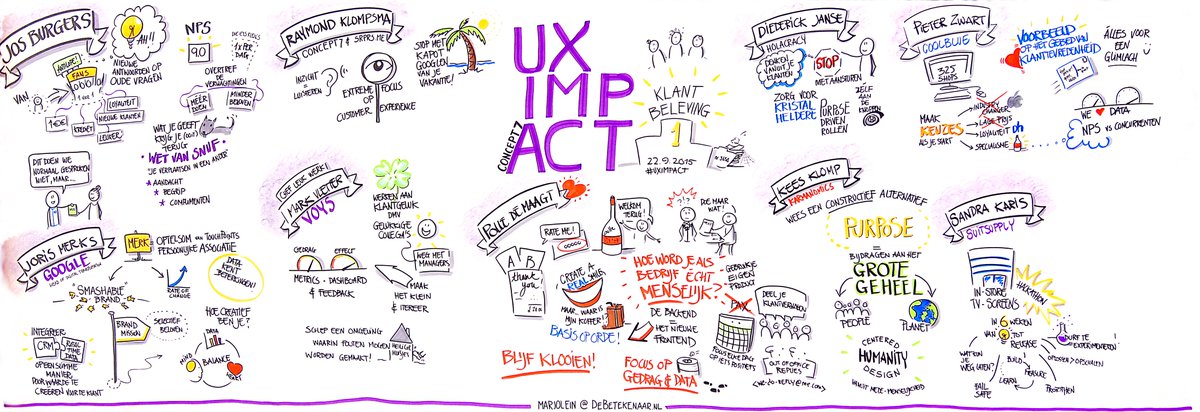 JOS BURGERS
AH!!
NIEUWE
ANTWOORDEN OP
OUDE VRAGEN
VAN
FANS
1 om 1
LOYALITEIT
NIEUWE KLANTEN
KREDIET
LEUKER
NPS
9.0
1x PER
DATE!
OVERTREF
DE
VERWACHTINGEN
MÉÉR
DOEN
MINDER
BELOVEN
WAT JE GEEFT
KRIJG JE (OOIT)
TERUG
"WET VAN SNUF"
JE VERPLAATSEN IN EEN ANDER
AANDACHT
BEGRIP
COMPLIMENTEN
DIT DOEN WE
NORMAAL GESPROKEN
NIET, MAAR...
RAYMOND KLOMPSMA
CONCEPT7 & SRPRS.ME
INZICHT
=
LUISTEREN?
EXTREME FOCUS
OP
CUSTOMER EXPERIENCE
STOP MET
KAPOT
GOOGLEN
VAN JE
VAKANTIE!
UX
IMP
ACT
CONCEPT7
KLANT
BELEVING
1
22.9.2015
#UXIMPACT
DIEDERICK JANSE
HOLACRACY
DENKEN
VANUIT JE
KLANTEN
STOP!
MET AANSTUREN
ZORG VOOR
KRISTAL
HELDERE
PURPOSE
DRIVEN
ROLLEN
ZELF
AAN
DE
KNOPPEN
PIETER ZWART
COOLBLUE
325
SHOPS
VOORBEELD
OP HET GEBIED VAN
KLANTTEVREDENHEID
ÁLLES VOOR
EEN
GLIMLACH
MAAK
KEUZES
ALS JE START
INDUSTRY
CHANGER
LAGE PRIJS
LOYALITEIT
SPECIALISME
WE DATA
NPS VS CONCURRENTEN
JORIS MERKS
GOOGLE
HEAD OF DIGITAL TRANSFORMATION
MERK
= OPTELSOM VAN TOUCHPOINTS
PERSOONLIJKE ASSOCIATIE
SMASHABLE
BRAND
RATE OF
CHANGE
DATA
KENT
BEPERKINGEN!
INTEGREER
CRM
REAL
TIME
DATA
OP EEN SOMME
MANIER
DOOR WAARDE TE
CREËREN VOOR DE KLANT
BRAND
MISSION
SELECTIEF
BELOVEN
HOE CREATIEF
BEN JE?
DATA
MIND
BALANCE
HEART
GEEF LEUK WERK!
MARK VLETTER
VOYS
WERKEN AAN
KLANTGELUK
DMV
GELUKKIGE
COLLEGA'S
WEG MET
MANAGERS
GEDRAG EFFECT
METRICS - DASHBOARD
& FEEDBACK
MAAK
HET KLEIN
& ITEREER
SCHEP EEN OMGEVING
WAARIN FOUTEN MOGEN
WORDEN GEMAAKT!
HEILIGE
HUISJES
POLLE DE MAAGT
A B
thank
you
RATE ME!
WELKOM
TERUG!
?!?
DOE MAAR
WAT!
CREATE A
REAL SMILE
MAAR... WAAR IS
MIJN KOFFER?
BASIS OP ORDE!
HOE WORD JE ALS
BEDRIJF ÉCHT
MENSELIJK?
GEBRUIK JE
EIGEN
PRODUCT
DE BACKEND
IS
HET NIEUWE
FRONTEND
FOCUS ELKE DAG
OP IETS POSITIEFS
DEEL JE
KLANTVERHALEN
OUT OF OFFICE
REPLIES
BLIJF KLOOIEN!
FOCUS OP
GEDRAG & DATA
KEES KLOMP
KARMANOMICS
WEES EEN CONSTRUCTIEF ALTERNATIEF
PURPOSE
=
BIJDRAGEN AAN HET
GROTE
GEHEEL
PEOPLE
PLANET
HUMANITY
CENTERED
DESIGN
VANUIT MEDE-MENSELIJKHEID
SANDRA KARIS
SUITSUPPLY
IN-STORE
TV-SCREENS
#HACKATHON
IN 6 WEKEN
VAN TOT
RELEASE
DURF TE
EXPERIMENTEREN!
WAT KUN JE
WEG LATEN?
BUILD
MEASURE
LEARN
FAIL
SAFE
OPLOSSEN > OPSCHALEN
MARJOLEIN @ DEBETEKENAAR.NL